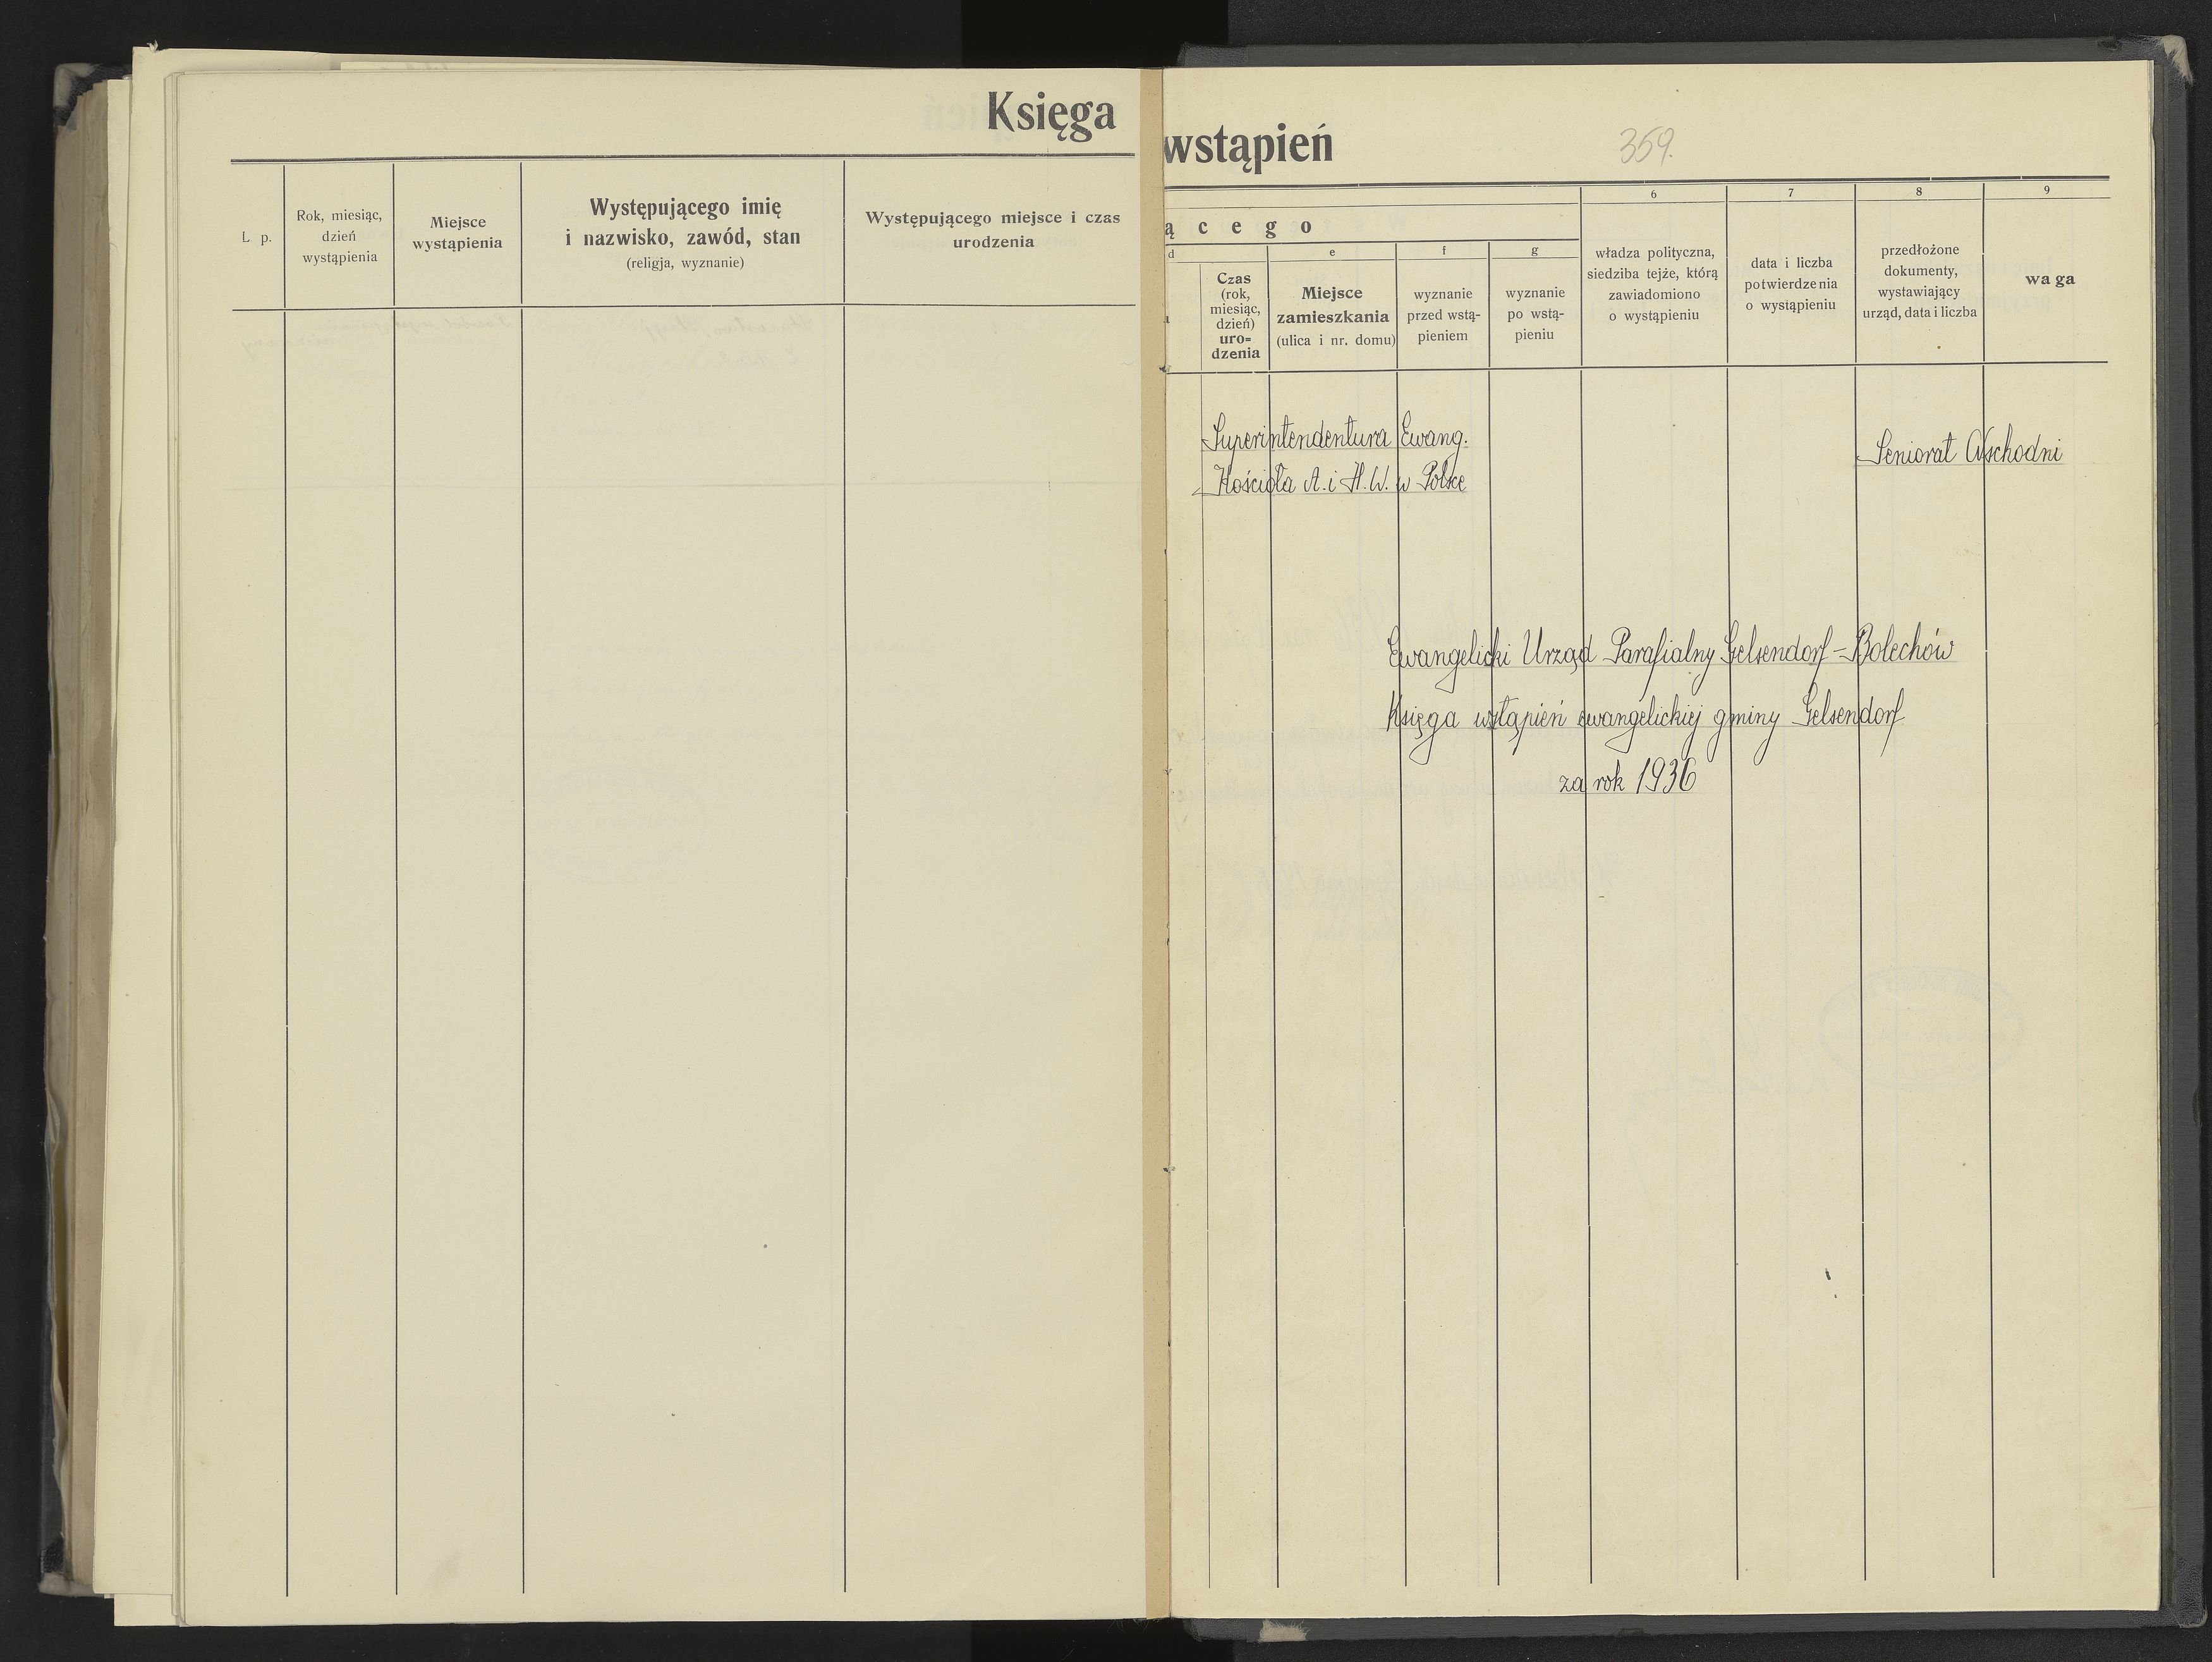 Księga
L. p.
Rok, miesiąc,
dzień
wystąpienia
Miejsce
wystąpienia
Występującego imię
i nazwisko, zawód, stan
(religja, wyznanie)
Występującego miejsce i czas
urodzenia
wstąpień
359.
ącego
d
e
f
g
6
7
8
9
Czas
(rok,
miesiąc,
dzień)
uro=
dzenia
Miejsce
zamieszkania
(ulica i nr. domu)
wyznanie
przed wstą-
pieniem
wyznanie
po wstą-
pieniu
władza polityczna,
siedziba tejże, którą
zawiadomiono
o wystąpieniu
data i liczba
potwierdzenia
o wystąpieniu
przedłożone
dokumenty,
wystawiający
urząd, data i liczba
waga
Superintendentura Ewang.
Kościoła A. i H. W. w Polsce
Seniorat Wschodni
Ewangelicki Urząd Parafialny Gelsendorf-Bolechów
Księga wstąpień ewangelickiej gminy Gelsendorf
za rok 1936